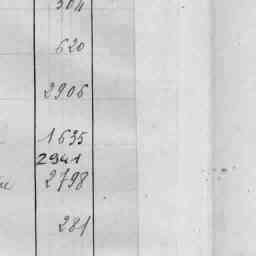 304
620
2906
1635
2941
2798
281